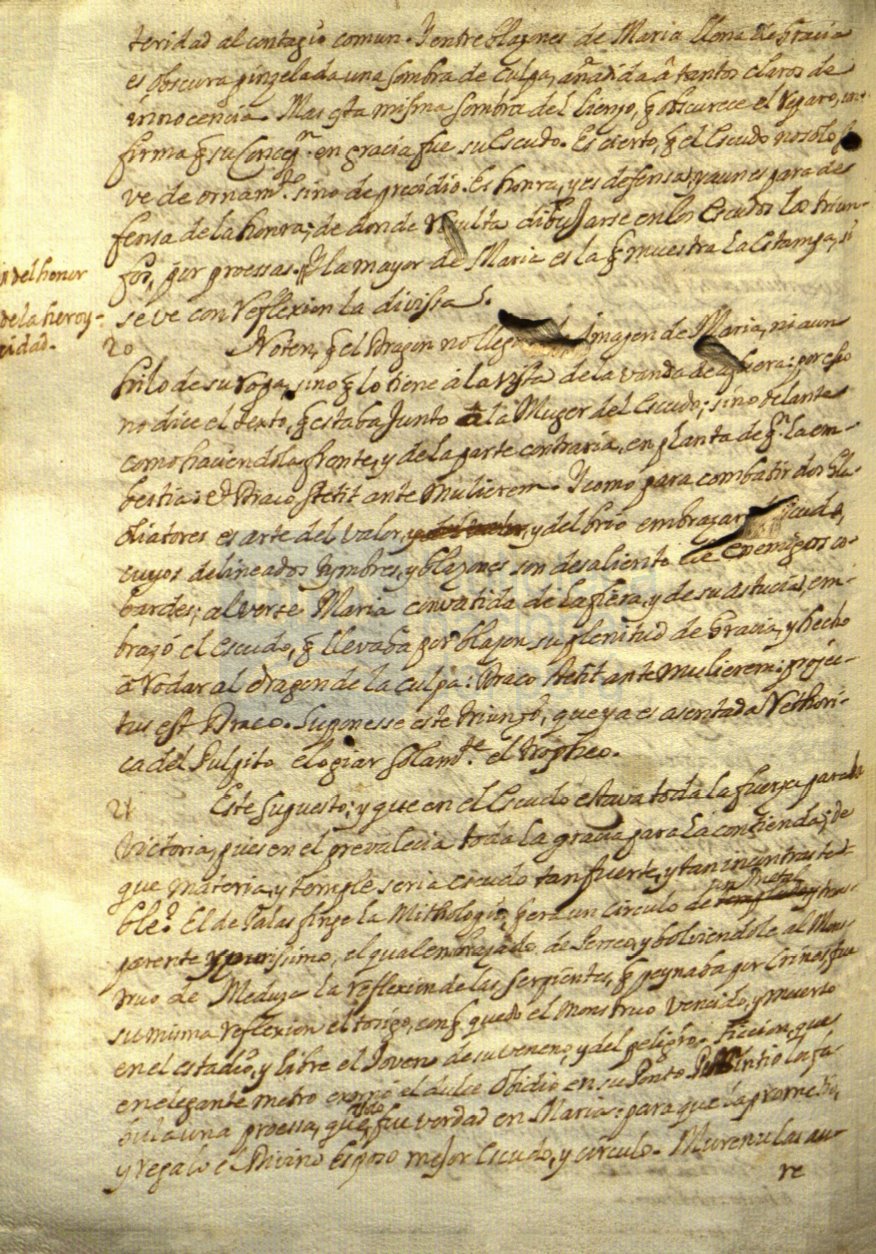 teridad al contagio comun. Y entre blazones de Maria llena de Gracia
es obscura pinzelada una sombra de culpa, añadida â tantos claros de
innocencia. Mas esta misma sombra del lienzo, q̃ obscurece el reparo, con-
firma q̃ su Concep.ⁿ en gracia fue su Escudo. Es cierto, q̃ el Escudo no solo sir-
ve de ornam.ᵗᵒ sino de presidio. Es honra, y es defensa; y aun es para de-
fensa de la honra; de donde resulta dibujarse en los Escudos los triun-
fos, por proessas. Y la mayor de Maria es la q̃ muestra la Estampa, si
se ve con reflexion la divissa.
del honor
de la heroy-
cidad.
20 Noten, q̃ el Dragon no Imagen de Maria, ni aun
hilo de su ropa, sino q̃ lo tiene à la vista de la vanda de afuera: por esso
no dice el texto, q̃ estaba junto a la Muger del Escudo; sino delante
como haciendola frente, y de la parte contraria, en planta de q.ⁿ la em-
bestia: et Draco stetit ante Mulierem. Y como para combatir dos Gla-
diatores es arte del valor, y del brio embrazar Escudo,
cuyos delineados tymbres, y blazones son desaliento de enemigos co-
bardes; al verse Maria convatida de la fiera, y de su astucia, em-
brazó el Escudo, q̃ llevaba por blazon su plenitud de Gracia, y hecho
a rodar al dragon de la culpa: Draco stetit ante mulierem: projec-
tus est Draco. Suponesse este triunfo, que ya es asentada Rethori-
ca del Pulpito elogiar solam.ᵗᵉ el tropheo.
21 Este supuesto; y que en el Escudo estava toda la fuerza para la
victoria, pues en el prevalecia toda la gracia para la contienda; de
que materia, y temple seria escudo tan fuerte, y tan incontrasta-
ble? El de Palas finge la Mithologia, q̃ era un circulo de un metal trans-
parente y purissimo, el qual embrazado de Perseo, y bolviendole al Mons-
truo de Meduza la reflexion de las serpientes, q̃ peynaba por crines, fue
su misma reflexion el tosigo, con q̃ quedo el monstruo vencido, y muerto
en el estadio, y libre el Joven de su veneno, y del peligro. Ficcion, que
en elegante metro exornó el dulce Obidio en su Ponto. la fa-
bula una proessa, que fue verdad en Maria: para que la prometio,
y regalo el Divino Esposo mejor Escudo, y circulo. Murenulas au-
re